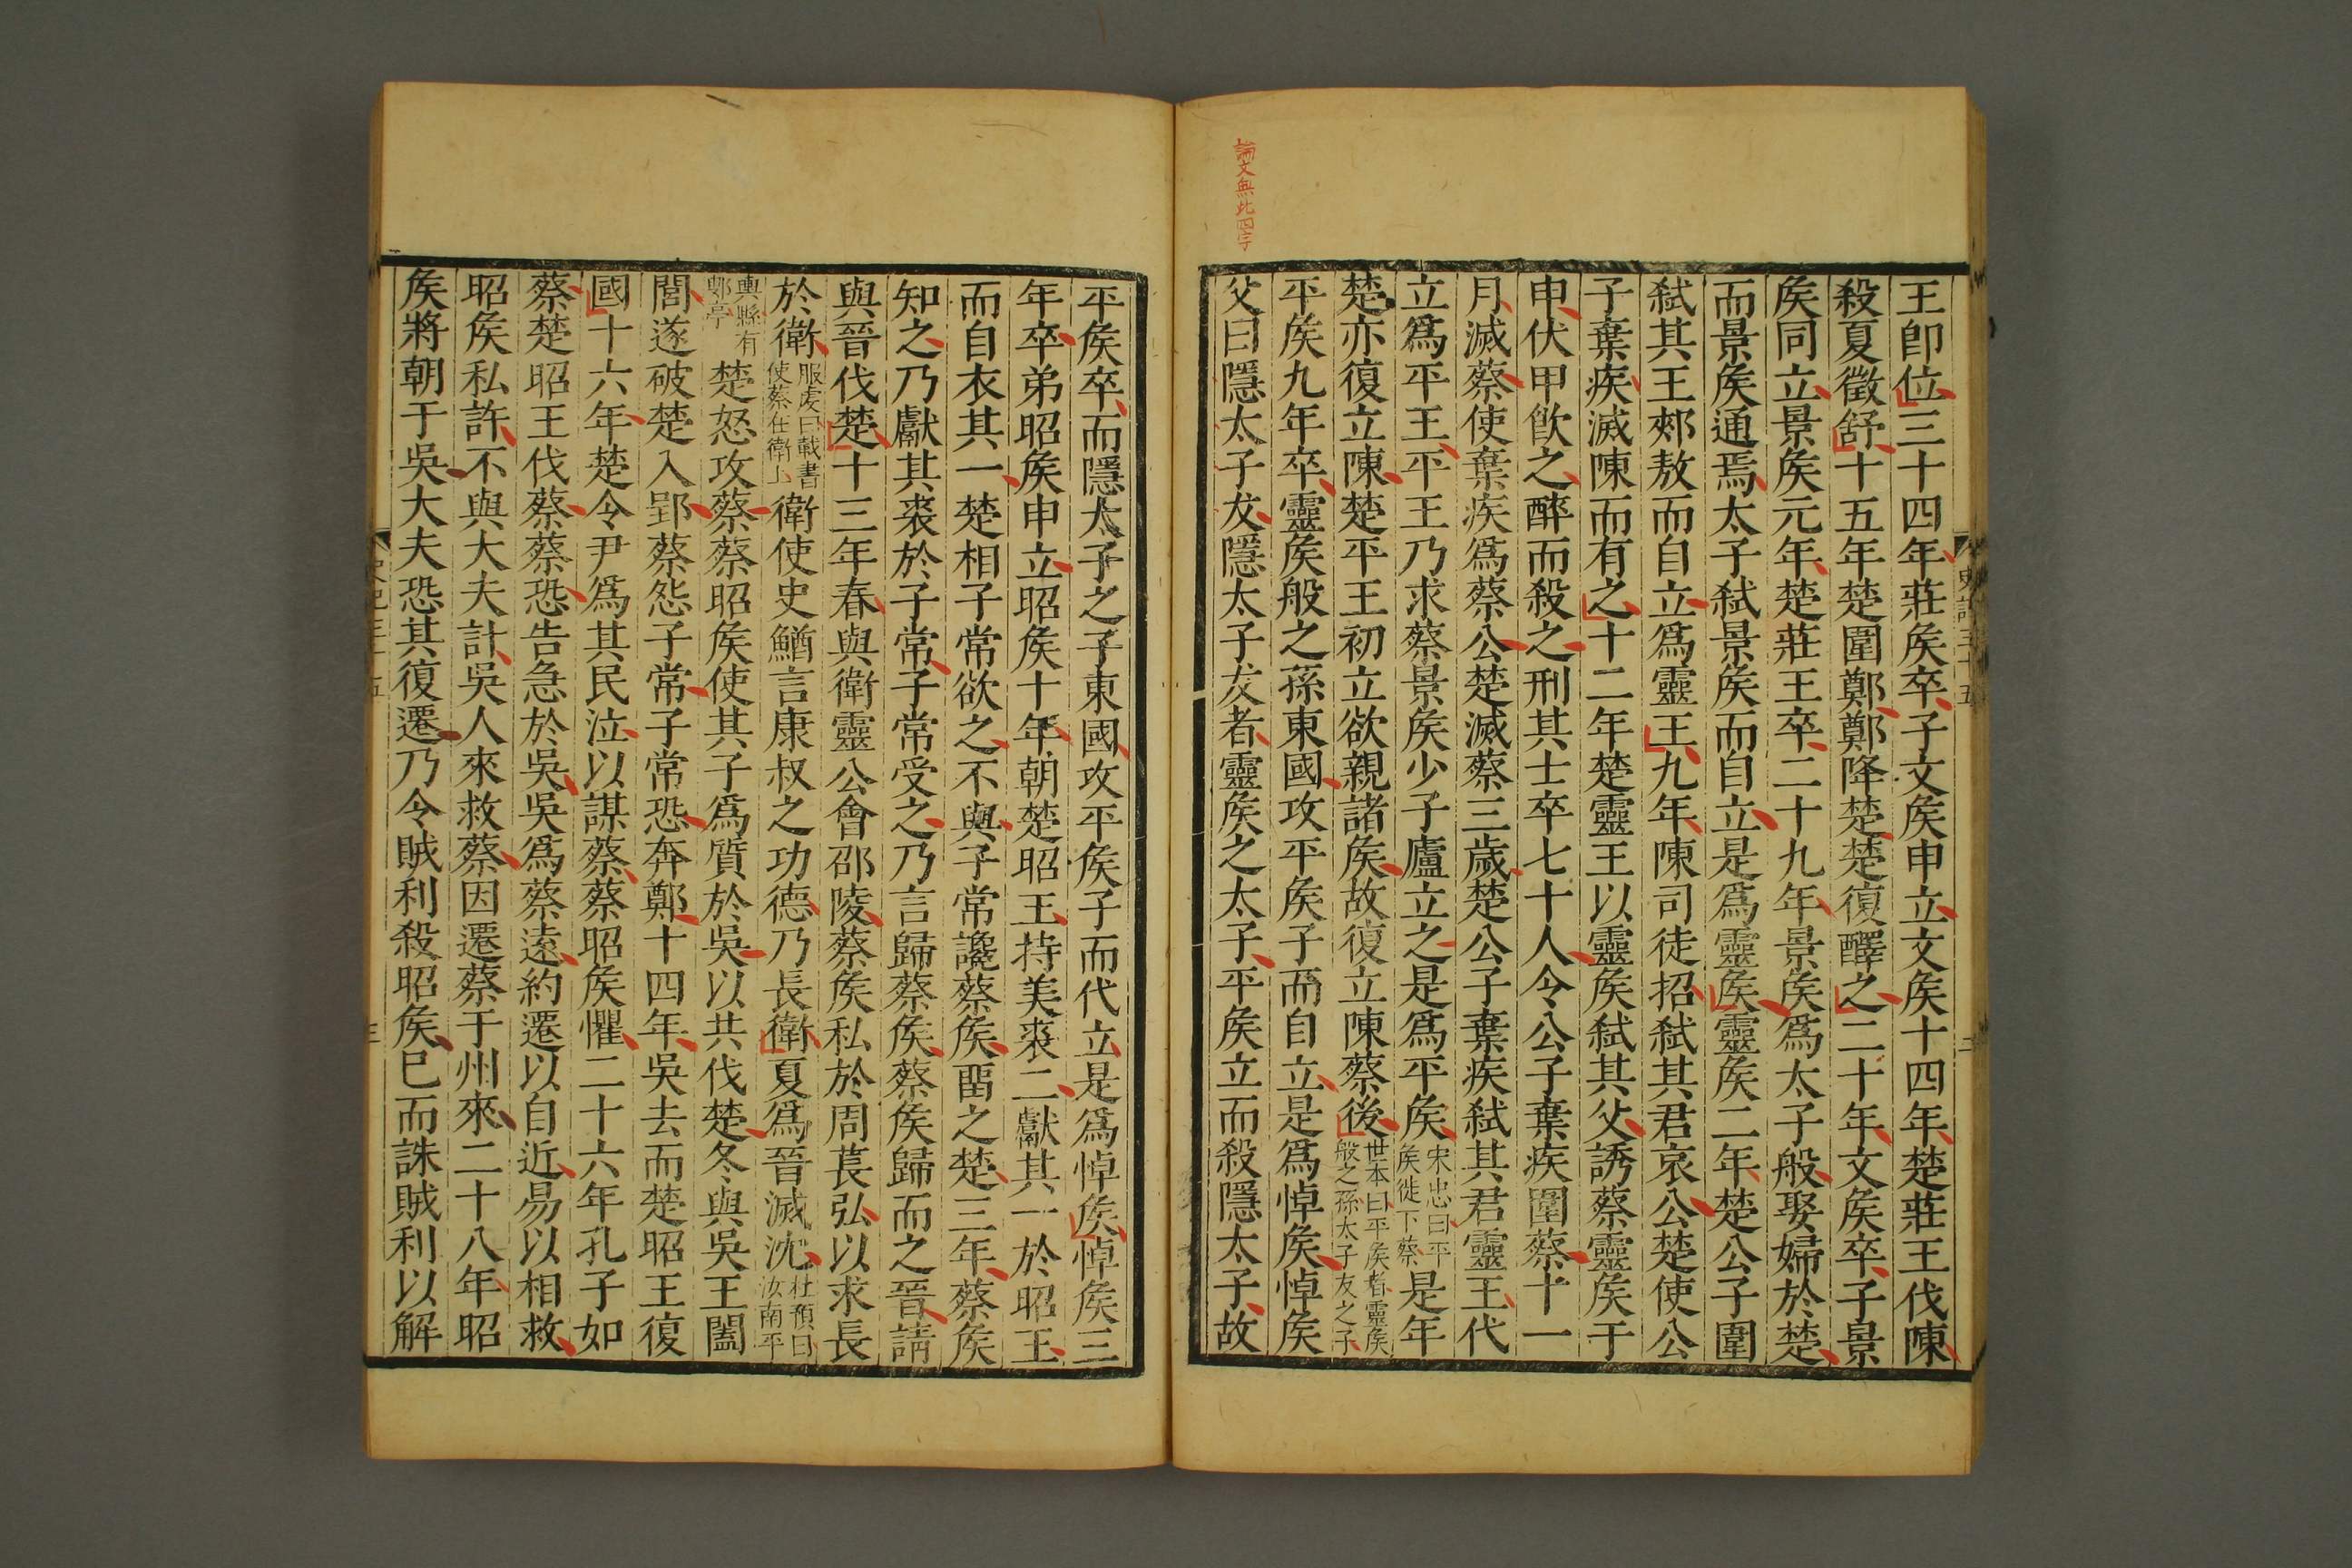 論文無此四字
王卽位三十四年莊矦卒子文矦申立文矦十四年楚莊王伐陳
殺夏徵舒十五年楚圍鄭鄭降楚楚復醳之二十年文矦卒子景
矦同立景矦元年楚莊王卒二十九年景矦爲太子般娶婦於楚
而景矦通焉太子弑景矦而自立是爲靈矦靈矦二年楚公子圍
弑其王郟敖而自立爲靈王九年陳司徒招弑其君哀公楚使公
子棄疾滅陳而有之十二年楚靈王以靈矦弑其父誘蔡靈矦于
申伏甲飮之醉而殺之刑其士卒七十人令公子棄疾圍蔡十一
月滅蔡使棄疾爲蔡公楚滅蔡三歲楚公子棄疾弑其君靈王代
立爲平王平王乃求蔡景矦少子廬立之是爲平矦宋忠曰平矦徙下蔡是年
楚亦復立陳楚平王初立欲親諸矦故復立陳蔡後世本曰平矦者靈矦般之孫太子友之子
平矦九年卒靈矦般之孫東國攻平矦子而自立是爲悼矦悼矦
父曰隱太子友隱太子友者靈矦之太子平矦立而殺隱太子故
史記三十五
二
平矦卒而隱太子之子東國攻平矦子而代立是爲悼矦悼矦三
年卒弟昭矦申立昭矦十年朝楚昭王持美裘二獻其一於昭王
而自衣其一楚相子常欲之不與子常讒蔡矦畱之楚三年蔡矦
知之乃獻其裘於子常子常受之乃言歸蔡矦蔡矦歸而之晉請
與晉伐楚十三年春與衛靈公會邵陵蔡矦私於周萇弘以求長
於衛服虔曰載書使蔡在衛上衛使史鰌言康叔之功德乃長衛夏爲晉滅沈杜預曰汝南平
輿縣有䢴亭楚怒攻蔡蔡昭矦使其子爲質於吳以共伐楚冬與吳王闔
閭遂破楚入郢蔡怨子常子常恐奔鄭十四年吳去而楚昭王復
國十六年楚令尹爲其民泣以謀蔡蔡昭矦懼二十六年孔子如
蔡楚昭王伐蔡蔡恐告急於吳吳爲蔡遠約遷以自近易以相救
昭矦私許不與大夫計吳人來救蔡因遷蔡于州來二十八年昭
矦將朝于吳大夫恐其復遷乃令賊利殺昭矦已而誅賊利以解